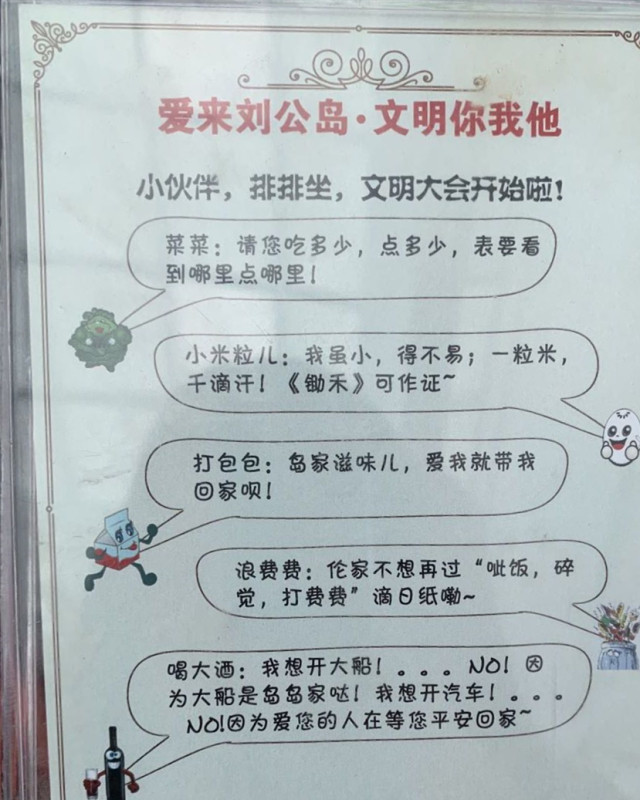 爱来刘公岛·文明你我他
小伙伴，排排坐，文明大会开始啦！
菜菜：请您吃多少，点多少，表要看
到哪里点哪里！
小米粒儿：我虽小，得不易；一粒米，
千滴汗！《锄禾》可作证~
打包包：岛家滋味儿，爱我就带我
回家呗！
浪费费：伦家不想再过“呲饭，碎
觉，打费费”滴日纸嘞~
喝大酒：我想开大船！。。。NO！因
为大船是岛岛家哒！我想开汽车！。。。
NO!因为爱您的人在等您平安回家~